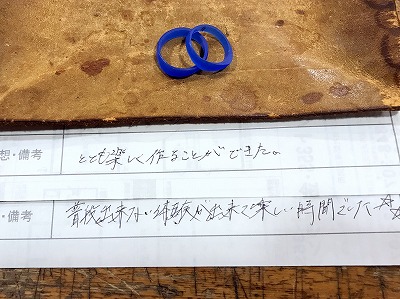 想・備考 とても楽しく作ることができた。
・備考 普段出来ない体験が出来て楽しい時間でした☆☆